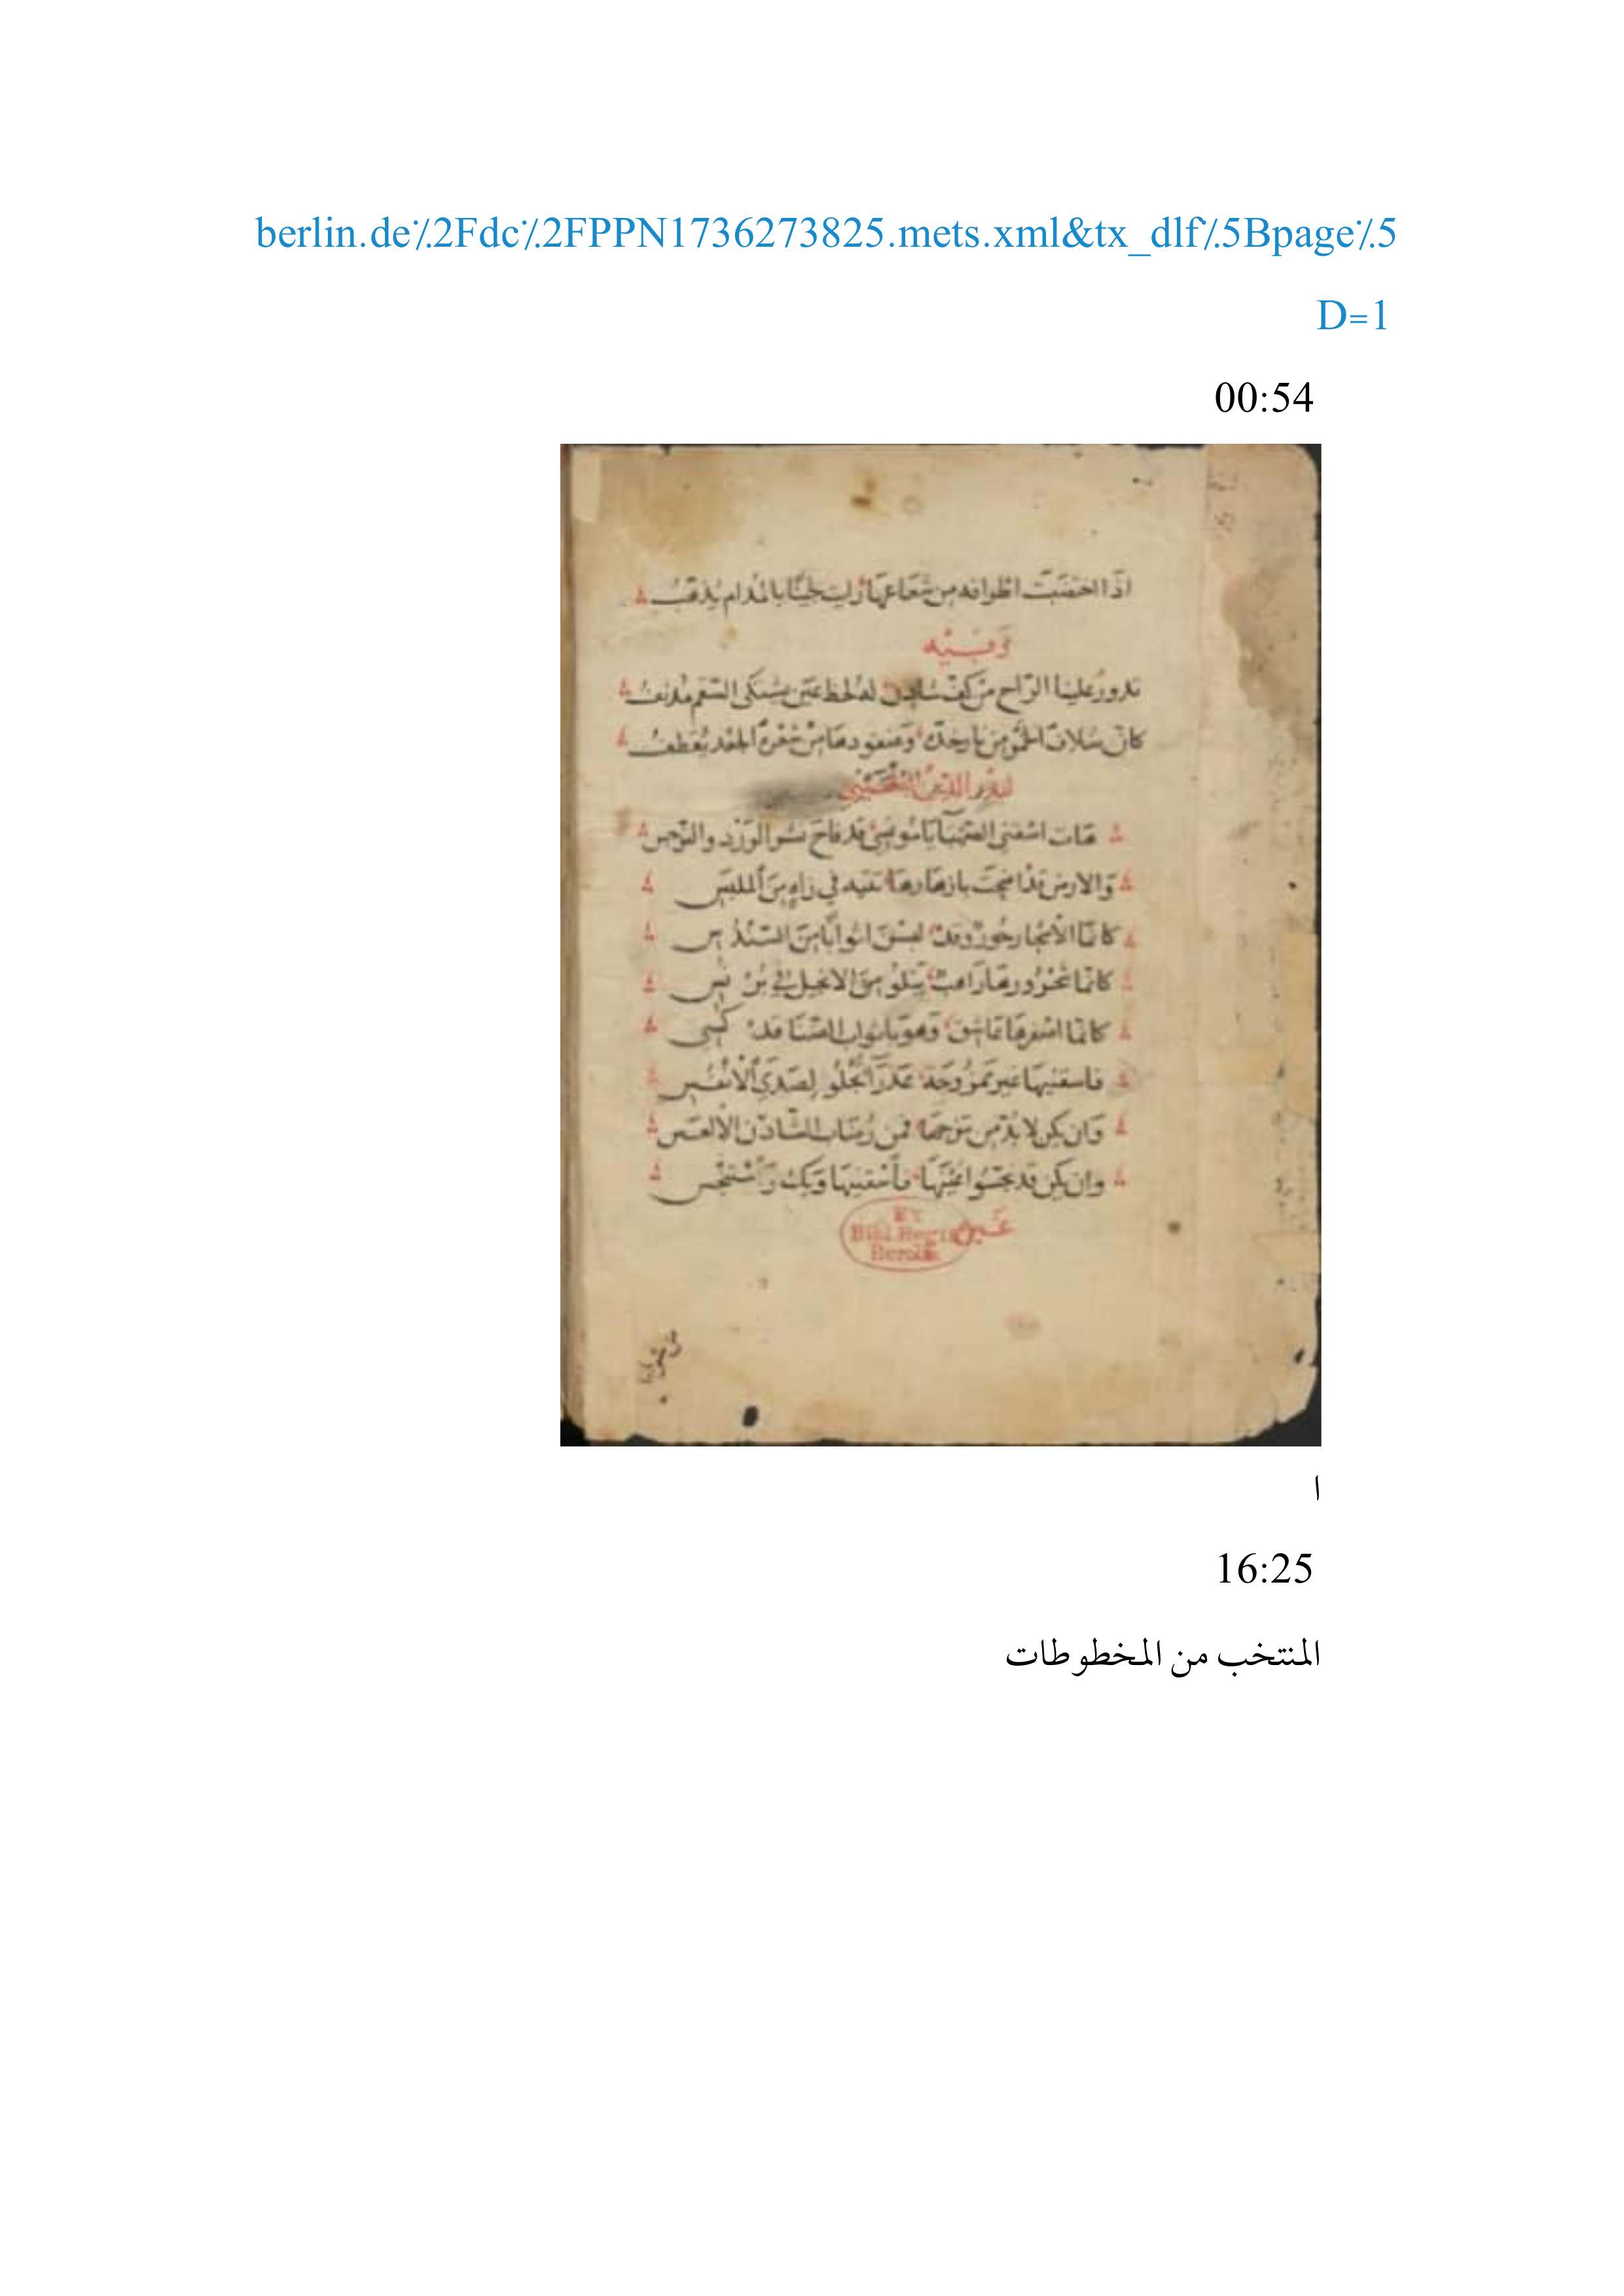 berlin.de٪2Fdc٪2FPPN1736273825.mets.xml&tx_dlf٪5Bpage٪5
D=1
00:54
اذا اختضبت اطرافه من شعاعها رايت لجينا بالمدام يذهب
وفيه
تدور علينا الراح من كف شادن له لحظ عين يشتكى السقم مدنف
كان سلاف الخمر من ماء خده وعنقودها من شعره الجعد يقطف
لبدر الدين
هات اسقنى الصهبا يا مونسى قد فاح نشر الورد والنرجس
والارض قد اضحت بازهارها تتيه في زاه من الملبس
كانما الاشجار حور وقد لبسن اثوابا من السندس
كانما شحرورها راهب يتلو من الانجيل في برنس
كانما اصفرها عاشق وهو باثواب الضنا قد كسى
فاسقنيها غير ممزوجة عذرا تجلو لصدى الانفس
وان يكن لا بد من مزجها فمن رضاب الشادن الالعس
وان يكن قد نجسوا عينها فاسقنيها ويك واستنجس
غيره
Bibl. Regia
Berolin
ا
16:25
المنتخب من المخطوطات